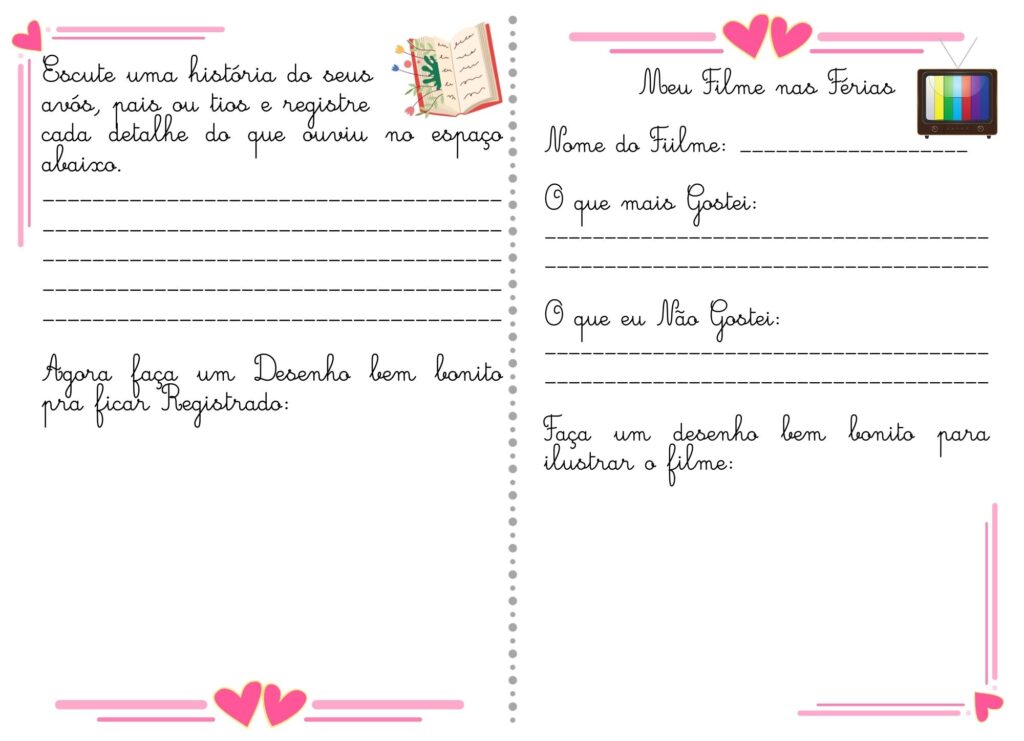 Escute uma história do seus
avós, pais ou tios e registre
cada detalhe do que ouviu no espaço
abaixo.
Agora faça um Desenho bem bonito
pra ficar Registrado:
Meu Filme nas Férias
Nome do Fiilme: ___________________
O que mais Gostei:
O que eu Não Gostei:
Faça um desenho bem bonito para
ilustrar o filme: